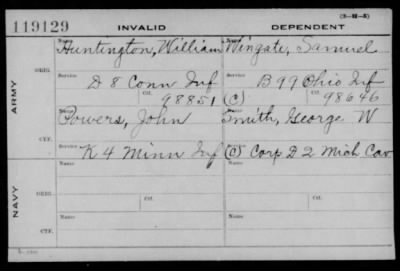 (3-M-5)
119129 INVALID DEPENDENT
Name Huntington, William Wingate, Samuel
ARMY
ORIG.
Service Service
D 8 Conn Inf B 99 Ohio Inf
Ctf. 98851 (C) Ctf. 98646
Powers, John Smith, George W
CTF.
Service
K 4 Minn Inf (C) Corp D 2 Mich Cav
NAVY
Name Name
ORIG.
Service Ctf. Service Ctf.
Name Name
CTF.
Service Service